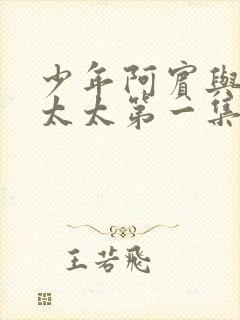 少年阿賓與
太太第一集
王若飛